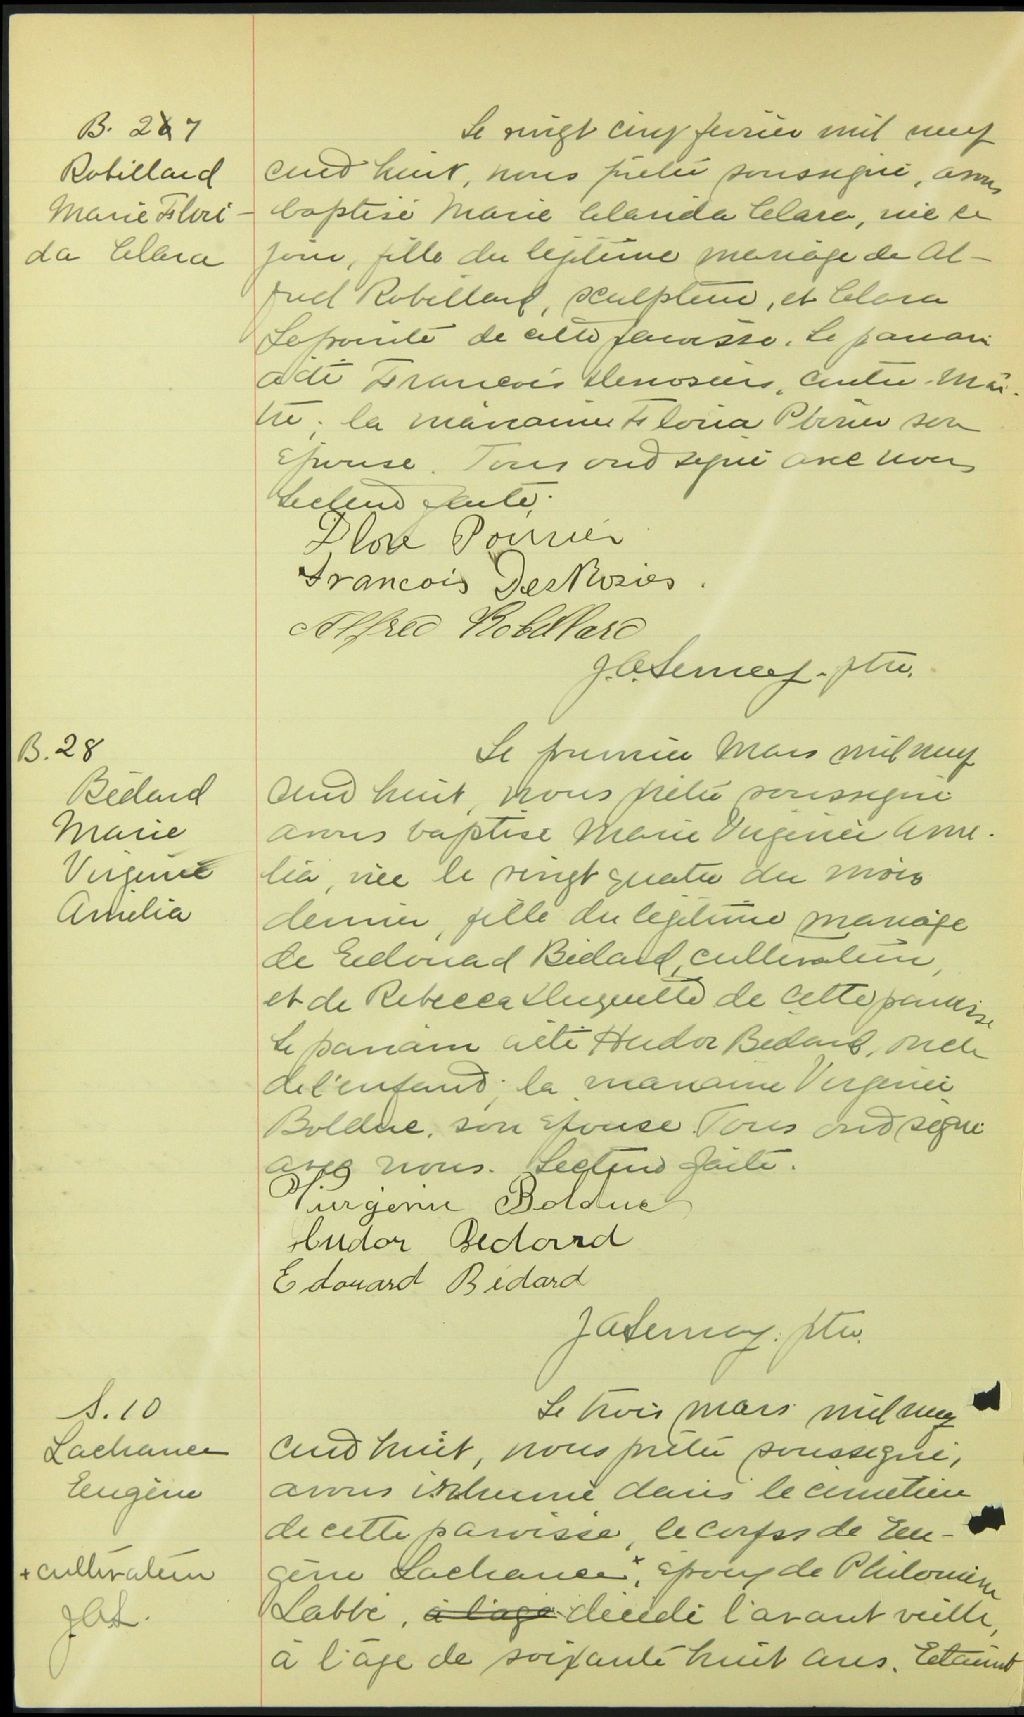 B. 27
Robillard
Marie Flori-
da Clara
Le vingt cinq février mil neuf
cent huit, nous prêtre soussigné, avons
baptisé Marie Clarida Clara, née ce
jour, fille du légitime mariage de Al-
fred Robillard, sculpteur, et Clara
Lapointe de cette paroisse. Le parrain
a été Francois Desrosiers, contre-maî-
tre; la marraine Floria Poirier son
épouse. Tous ont signé avec nous
Lecture faite.
Flore Poirrier
Francois DesRosies.
Alfred Robillard
J.A. Lemay. ptre.
B. 28
Bédard
Marie
Virginie
Amelia
Le premier Mars mil neuf
cent huit, nous prêtre soussigné
avons baptisé Marie Virginie Ame-
lia, née le vingt quatre du mois
dernier, fille du légitime mariage
de Edouard Bédard, cultivateur,
et de Rebecca Huguette de cette paroisse
Le parrain a été Hudor Bédard, oncle
de l'enfant; la marraine Virginie
Bolduc, son épouse. Tous ont signé
avec nous. Lecture faite.
Virginie Bolduc
Hudor Bedard
Edouard Bédard
J.A. Lemay. ptre.
S. 10
Lachance
Eugène
+ cultivateur
J.A.L.
Le trois mars mil neuf
cent huit, nous prêtre soussigné,
avons inhumé dans le cimetière
de cette paroisse, le corps de Eu-
gène Lachance +, époux de Philomène
Labbé, à l'age décédé l'avant veille,
à l'âge de soixante huit ans. Etaient